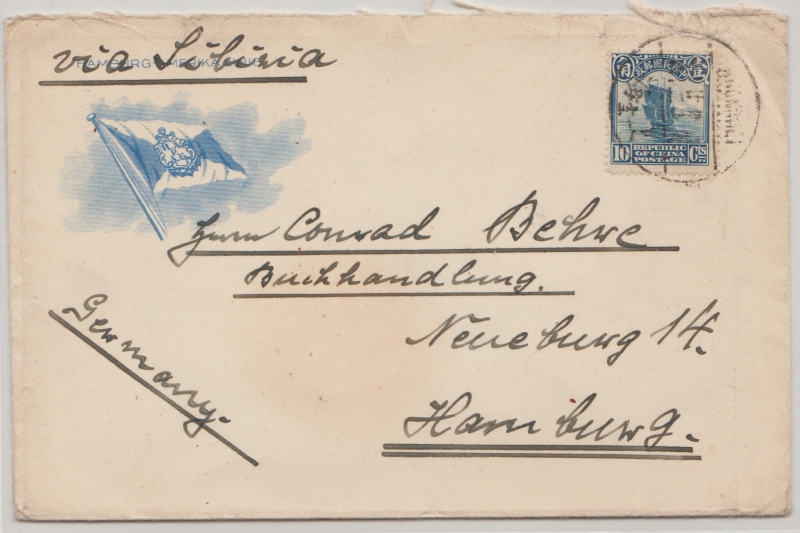 via Sibiria
HAMBURG-AMERIKA LINIE
中華民國郵政
REPUBLIC
OF CHINA
POSTAGE
10 Cts
Herrn Conrad Behre
Buchhandlung.
Neueburg 14.
Hamburg.
Germany.